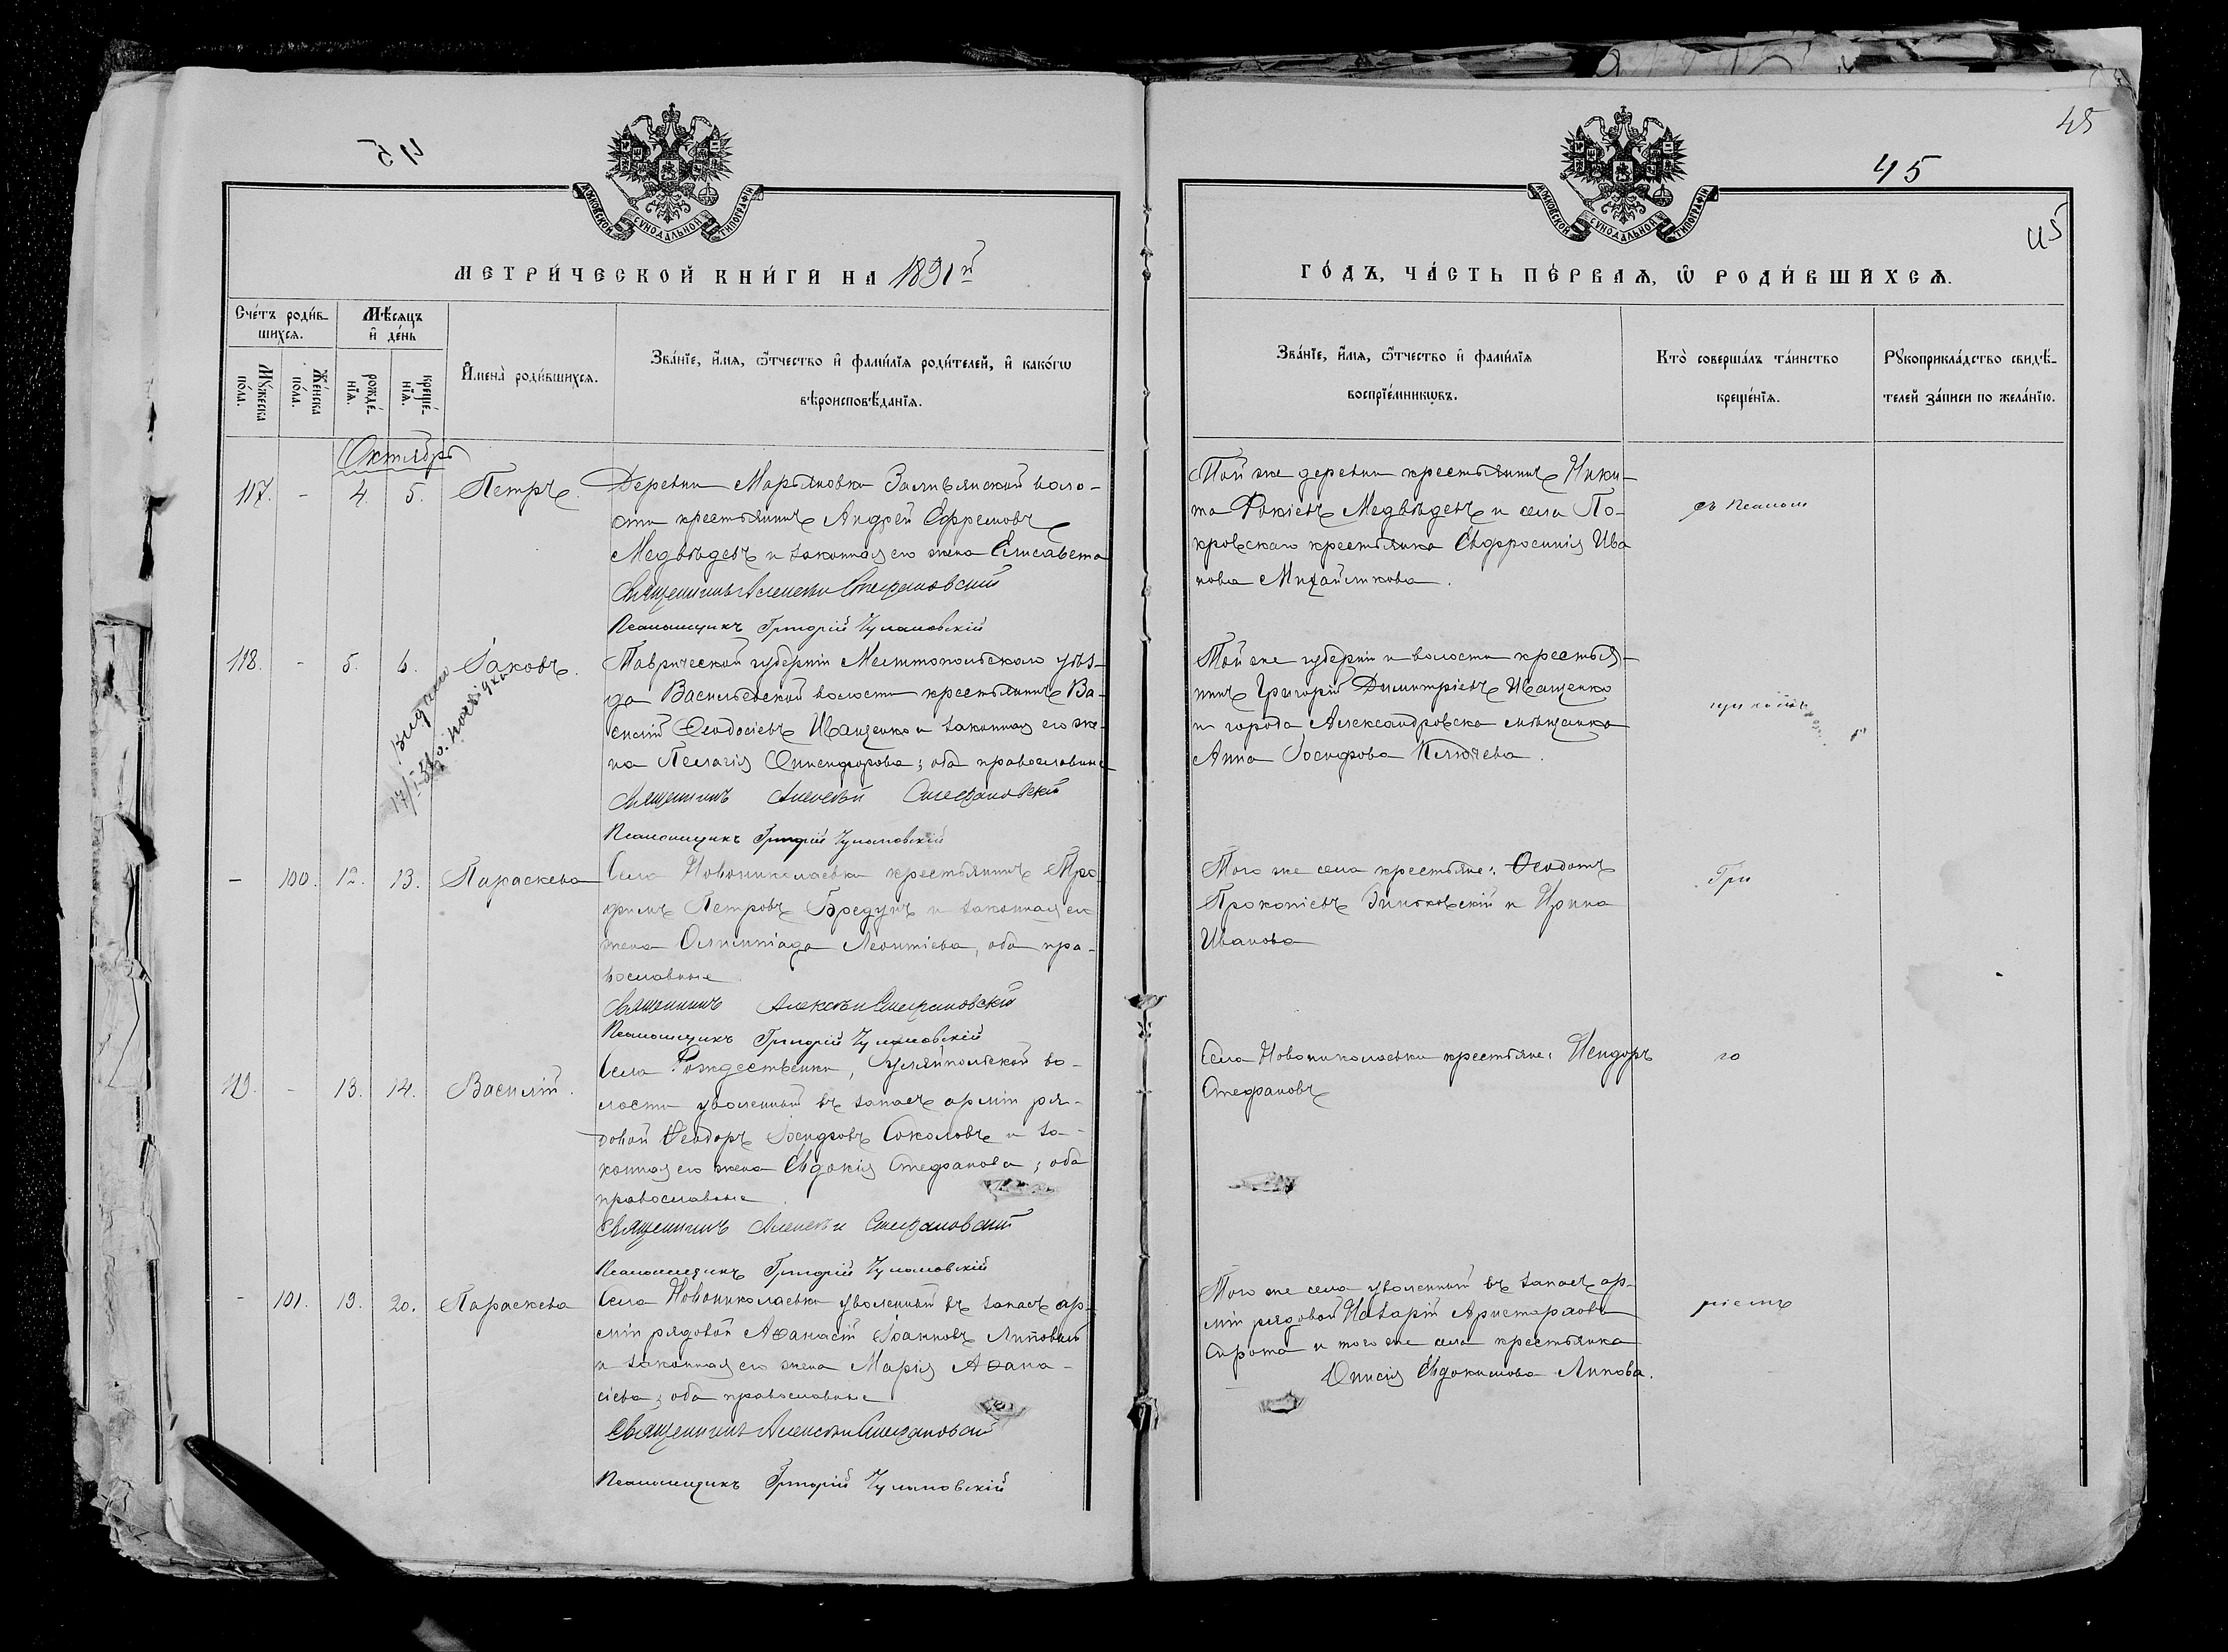 45
МОСКОВСКОЙ СѴНОДАЛЬНОЙ ТИПОГРАФІИ
МЕТРИ́ЧЕСКОЙ КНИ́ГИ НА 1891й
Сче́тъ роди́в-
шихсѧ.
Мѣ́сѧцъ
и҆ де́нь
Мꙋ́жеска
по́ла.
Же́нска
по́ла.
рожде́-
нїѧ.
креще́-
нїѧ.
И҆мена̀ роди́вшихсѧ.
Зва́нїе, и҆́мѧ, ѻ҆́тчество и҆ фами́лїѧ роди́телей, и҆ како́гѡ
вѣроисповѣ́данїѧ.
Октябрь
117. - 4. 5. Петръ.
Деревни Марьяновки Заливянской воло-
сти крестьянинъ Андрей Ефремовъ
Медвѣдевъ и законная его жена Елисавета
Священникъ Алексѣй Стефановский
Псаломщикъ Григорій
118. - 5. 6. Іаковъ.
Таврической губерніи Мелитопольскаго уѣз-
да Васильевской волости крестьянинъ Ва-
силій Ѳеодосіевъ Иващенко и законная его же-
на Пелагія Онисифорова; оба православные
Священникъ Алексѣй Стефановскій
Псаломщикъ Григорій
- 100. 12. 13. Параскева
Села Новониколаевки крестьянинъ Тро-
фимъ Петровъ Бредунъ и законная его
жена Олимпіада Леонтіева, оба пра-
вославные
Священникъ Алексѣй Стефановскій
Псаломщикъ Григорій
119. - 13. 14. Василій.
Села Рождественки, Гуляйпольской во-
лости уволенный въ запасъ арміи ря-
довой Ѳеодоръ Іосифовъ Соколовъ и за-
конная его жена Евдокія Стефанова; оба
православные
Священникъ Алексѣй Стефановский
Псаломщикъ Григорій
- 101. 19. 20. Параскева
Села Новониколаевки уволенный въ запасъ ар-
міи рядовой Аѳанасій Іоанновъ
и законная его жена Марія Аѳана-
сіева; оба православные
Священникъ Алексѣй Стефановский
Псаломщикъ Григорій
45
45
45
МОСКОВСКОЙ СѴНОДАЛЬНОЙ ТИПОГРАФІИ
ГО́ДЪ, ЧА́СТЬ ПЕ́РВАѦ, Ѽ РОДИ́ВШИХСѦ.
Зва́нїе, и҆́мѧ, ѻ҆́тчество и҆ фами́лїѧ
воспрїе́мникѡвъ.
Кто̀ соверша́лъ та́инство
креще́нїѧ.
Рꙋкоприкла́дство свидѣ́-
телей за́писи по жела́нїю.
Той же деревни крестьянинъ Ники-
та Фокіевъ Медвѣдевъ и села По-
кровскаго крестьянка Евфросинія Ива
нова Михайликова.
Той же губерніи и волости крестья-
нинъ Григорій Димитріевъ Иващенко
и города Александровска мѣщанка
Анна Іосифова Ключева.
Того же села крестьяне: Ѳеодотъ
Прокопіевъ и Ирина
Иванова
Гри
Села Новониколаевки крестьяне: Исидоръ
Стефановъ
го
Того же села уволенный въ запасъ ар-
міи рядовой Назарій Аристархова
Сирота и того же села крестьянка
Евдокимова Липова.
ріемъ